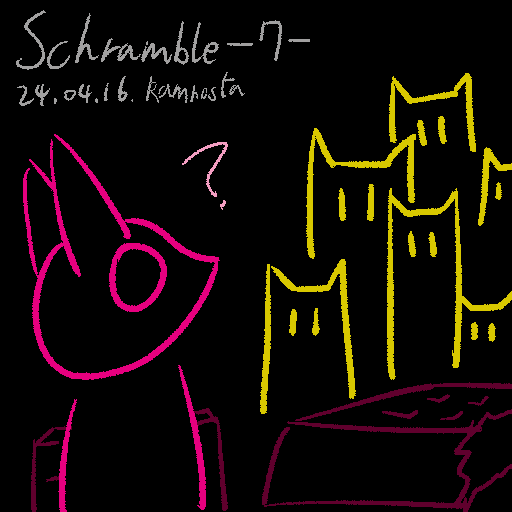 Schramble-7-
24.04.16. kamnosta
?